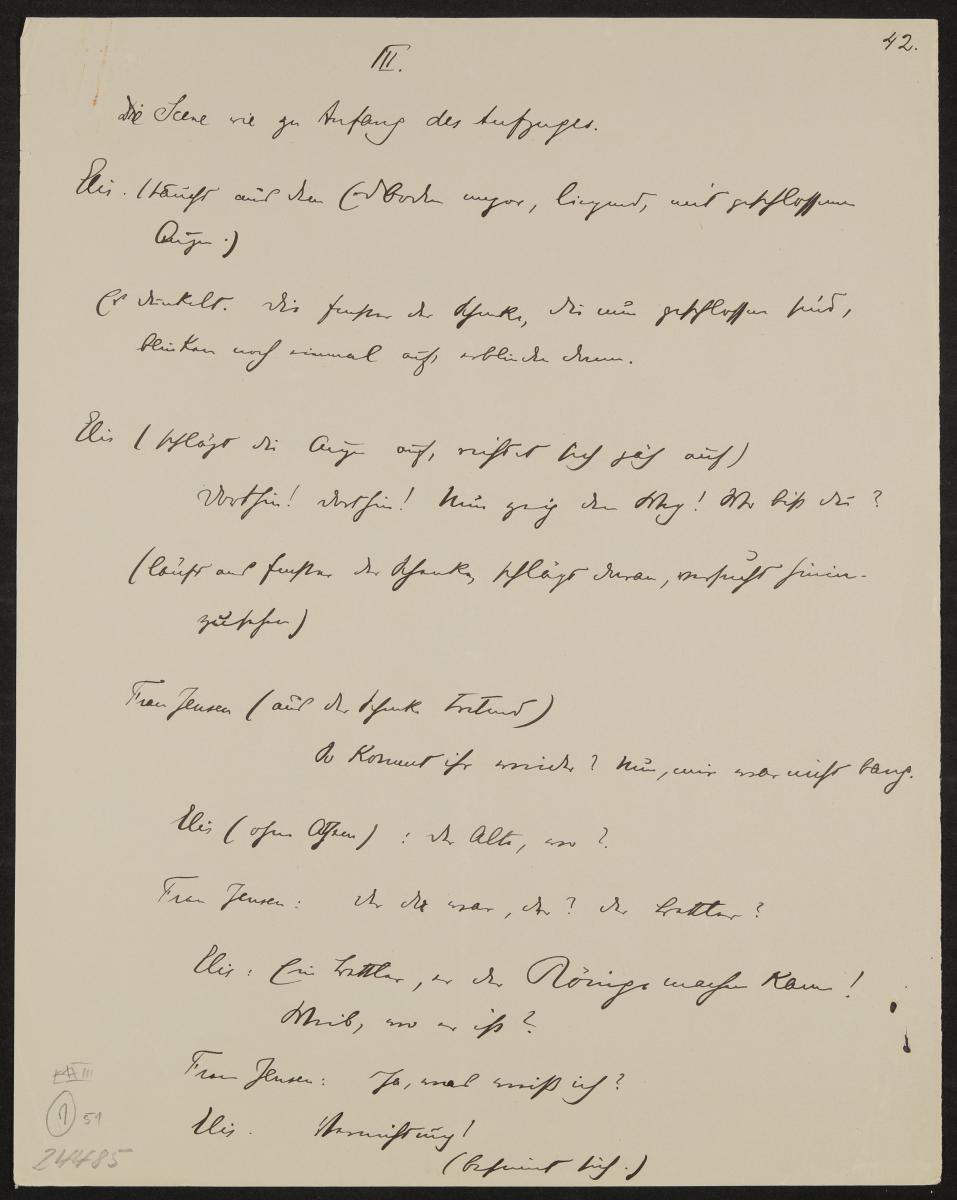 42.
III.
Die Scene wie zu Anfang des Aufzuges.
Elis. (taucht aus dem Erdboden empor, liegend, mit geschlossenen
Augen.)
Es dunkelt. Die Fenster der Schenke, die nun geschlossen sind,
blinken noch einmal auf, erblinden dann.
Elis (schlägt die Augen auf, richtet sich jäh auf)
Dorthin! dorthin! Nun zeig den Weg! Wo bist du?
(läuft ans Fenster der Schenke, schlägt daran, versucht hinein-
zusehen)
Frau Jensen (aus der Schenke tretend)
So kommt ihr wieder? Nun, mir war nicht bang.
Elis (ohne Athem) : der Alte, wo?
Frau Jensen: der da war, der? der Bettler?
Elis: Ein Bettler, er der Könige machen kann!
Weib, wo er ist?
Frau Jensen: Ja, was weiß ich?
Elis. Vernichtung!
(besinnt sich.)
III
1 51
24485